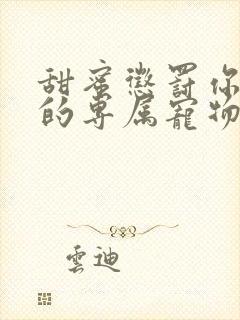 甜蜜懲罰你
的專属寵物
雲迪